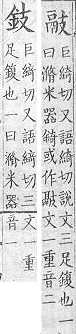 䰙
巨綺切又語綺切說文三足鍑也一
曰滫米器錡或作䰙文一重音二
鈘
巨綺切又語綺切三文一重
足鍑也一曰滫米器音